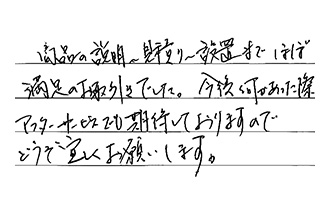 商品の説明〜見積り〜設置までほぼ
満足のお取引きでした。今後何かあった際
アフターサービスでも期待しておりますので
どうぞ宜しくお願いします。